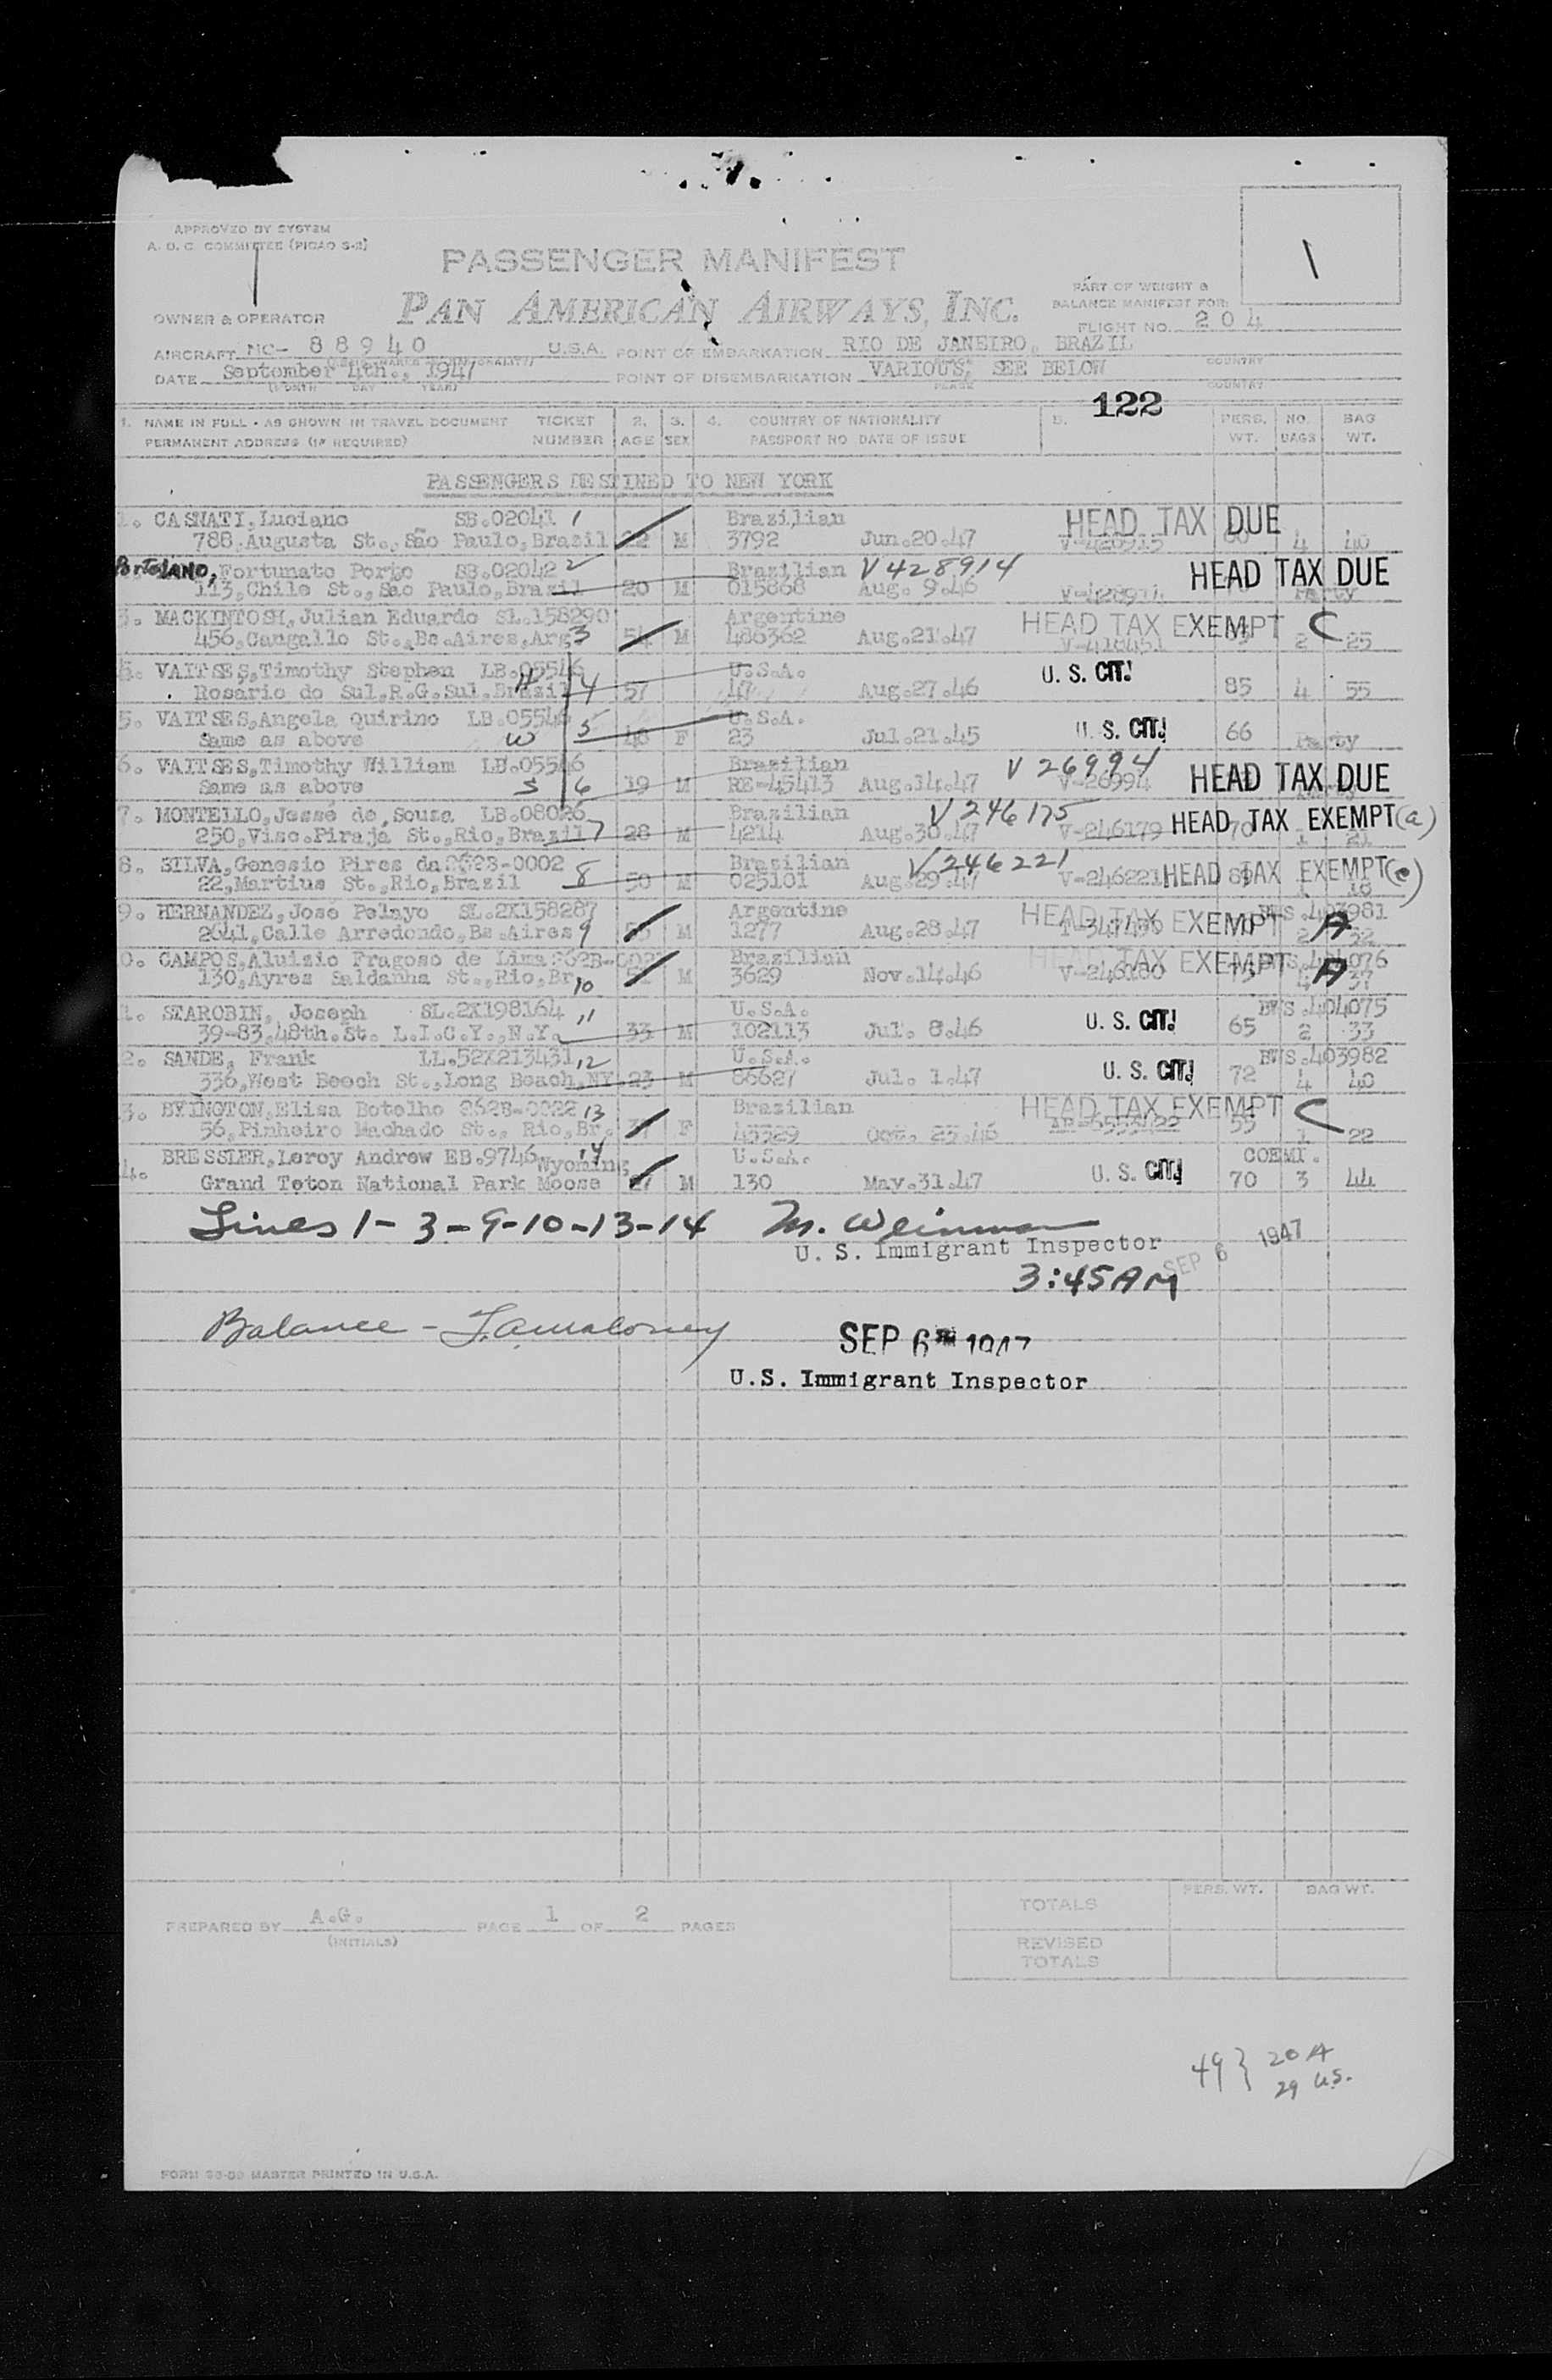 APPROVED BY SYSTEM
A. O. C. COMMITTEE (PICAO S-2)
PASSENGER MANIFEST
PAN AMERICAN AIRWAYS, INC.
PART OF WEIGHT &
BALANCE MANIFEST FOR:
OWNER & OPERATOR
FLIGHT NO. 204
AIRCRAFT NC- 88940 U.S.A. POINT OF EMBARKATION RIO DE JANEIRO, BRAZIL
COUNTRY
DATE September 4th., 1947 POINT OF DISEMBARKATION VARIOUS; SEE BELOW
(MONTH DAY YEAR) PLACE COUNTRY
122
1. NAME IN FULL - AS SHOWN IN TRAVEL DOCUMENT TICKET 2. 3. 4. COUNTRY OF NATIONALITY 5. PERS. NO. BAG
PERMANENT ADDRESS (IF REQUIRED) NUMBER AGE SEX PASSPORT NO. DATE OF ISSUE WT. BAGS WT.
PASSENGERS DESTINED TO NEW YORK
1. CASNATI, Luciano SB.02041 1 Brazilian HEAD TAX DUE
788, Augusta St., São Paulo, Brazil 22 M 3792 Jun.20.47 4 40
PortoLANO, Fortunato Porto SB.02042 2 Brazilian V428914 HEAD TAX DUE
113, Chile St., Sao Paulo, Brazil 20 M 015868 Aug. 9.46 Party
3. MACKINTOSH, Julian Eduardo SL.158290 Argentine HEAD TAX EXEMPT C
456, Cangallo St., Bs.Aires, Arg 3 54 M 486362 Aug.21.47 V-418451 2 25
4. VAITSES, Timothy Stephen LB.05546 U.S.A. U. S. CIT!
Rosario do Sul, R.G.Sul, Brazil H 4 57 47 Aug.27.46 85 4 55
5. VAITSES, Angela Quirino LB.05546 5 U.S.A. U. S. CIT!
Same as above W 48 F 23 Jul.21.45 66 Party
6. VAITSES, Timothy William LB.05546 Brazilian V 26994
Same as above S 6 19 M RE-45413 Aug.14.47 V-26994 HEAD TAX DUE
7. MONTELLO, Jessé de, Souza LB.08026 Brazilian V 246175
250, Visc.Pirajá St., Rio, Brazil 7 28 M 4214 Aug.30.47 V-246179 HEAD TAX EXEMPT (a)
70 1 21
8. SILVA, Genesio Pires da 262B-0002 8 Brazilian V246221
22, Martius St., Rio, Brazil 50 M 025101 Aug.29.47 V-246221 HEAD TAX EXEMPT (e)
1 18
9. HERNANDEZ, José Pelayo SL.2X158287 Argentine HEAD TAX EXEMPT BVS.403981
2641, Calle Arredondo, Bs.Aires 9 M 1277 Aug.28.47 2 A 32
0. CAMPOS, Aluizio Fragoso de Lima 262B-002 Brazilian HEAD TAX EXEMPT BVS.404076
130, Ayres Saldanha St., Rio, Br 10 M 3629 Nov.14.46 V-246180 75 4 A 37
1. STAROBIN, Joseph SL.2X198164 11 U.S.A. U. S. CIT! BVS.404075
39-83, 48th.St. L.I.C.Y., N.Y. 33 M 102113 Jul. 8.46 65 2 33
2. SANDE, Frank LL.52X213431 12 U.S.A. U. S. CIT! BVS.403982
336, West Beech St., Long Beach, NY 23 M 86627 Jul. 1.47 72 4 40
3. BYINGTON, Elisa Botelho 262B-0022 13 Brazilian HEAD TAX EXEMPT C
56, Pinheiro Machado St., Rio, Br. F 45329 Oct. 25.46 55 1 22
BRESSLER, Leroy Andrew EB.9746 14 U.S.A. U. S. CIT! COEMI.
4. Grand Teton National Park Moose Wyoming 27 M 130 May.31.47 70 3 44
Lines 1-3-9-10-13-14 M. Weinman
U. S. Immigrant Inspector SEP 6 1947
3:45AM
Balance - F.A. Maloney SEP 6 1947
U.S. Immigrant Inspector
PREPARED BY A.G. PAGE 1 OF 2 PAGES
(INITIALS)
TOTALS PERS. WT. BAG WT.
REVISED
TOTALS
49 } 20 A
29 U.S.
FORM MASTER PRINTED IN U.S.A.